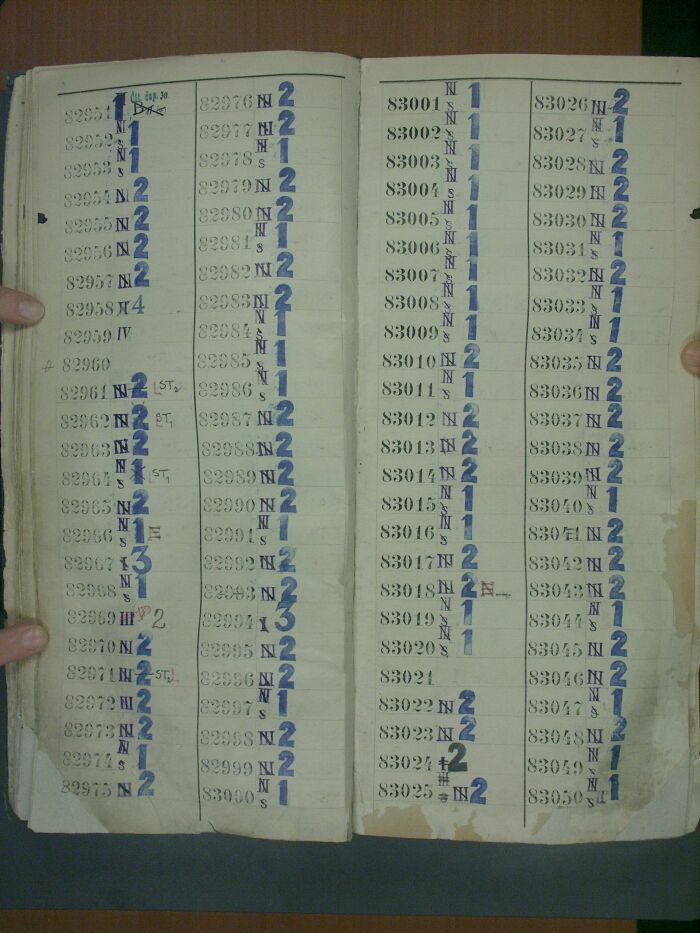 82951 1 Čít. čap. 30
82952 N s 1
82953 N s 1
82954 N 2
82955 N 2
82956 N 2
82957 N 2
82958 4
82959 IV
82960
82961 N 2 ST2
82962 N 2 ST1
82963 N 2
82964 N s 1 ST1
82965 N 2
82966 N s 1
82967 I 3
82968 N s 1
82969 III 2
82970 N 2
82971 N 2 ST2
82972 N 2
82973 N 2
82974 N s 1
82975 N 2
82976 N 2
82977 N 2
82978 N s 1
82979 N 2
82980 N 2
82981 N s 1
82982 N 2
82983 N 2
82984 N s 1
82985 N s 1
82986 N s 1
82987 N 2
82988 N 2
82989 N 2
82990 N 2
82991 N s 1
82992 N 2
82993 N 2
82994 I 3
82995 N 2
82996 N 2
82997 N s 1
82998 N 2
82999 N 2
83000 N s 1
83001 N s 1
83002 N s 1
83003 N s 1
83004 N s 1
83005 N s 1
83006 N s 1
83007 N s 1
83008 N s 1
83009 N s 1
83010 N 2
83011 N s 1
83012 N 2
83013 N 2
83014 N 2
83015 N s 1
83016 N s 1
83017 N 2
83018 N 2
83019 N s 1
83020 N s 1
83021
83022 N 2
83023 N 2
83024 2
83025 N 2
83026 N 2
83027 N s 1
83028 N 2
83029 N 2
83030 N 2
83031 N s 1
83032 N 2
83033 N s 1
83034 N s 1
83035 N 2
83036 N 2
83037 N 2
83038 N 2
83039 N 2
83040 N s 1
83041 N 2
83042 N 2
83043 N 2
83044 N s 1
83045 N 2
83046 N 2
83047 N s 1
83048 N 2
83049 N s 1
83050 N s 1